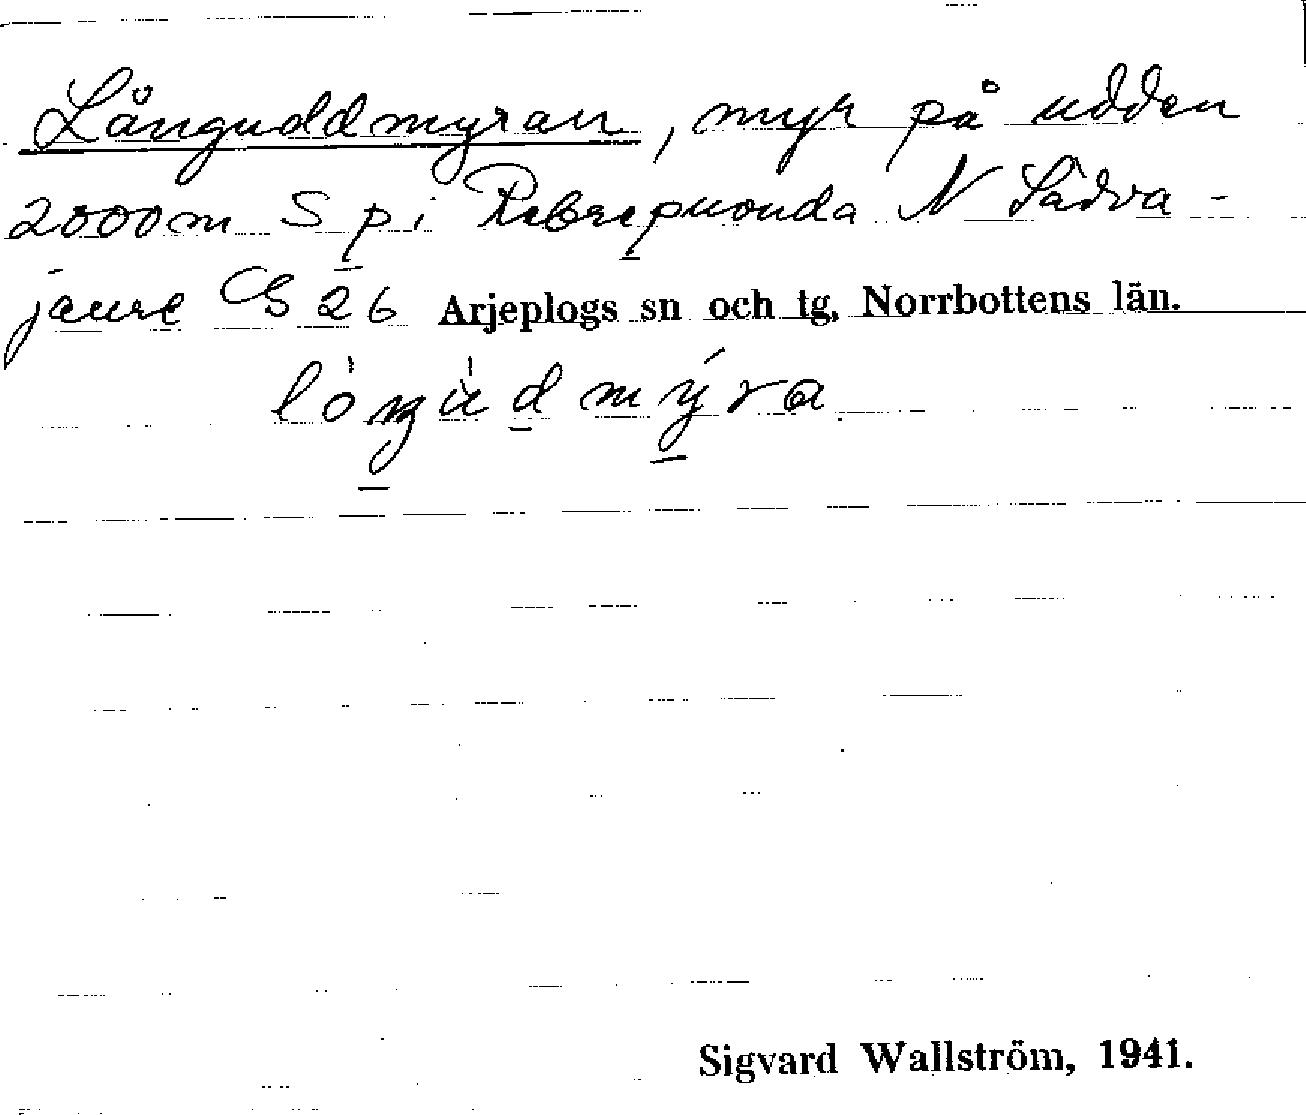 Långuddmyran, myr på udden
2000 m S p i Rebrepuouda N Sädva-
jaure CS 26 Arjeplogs sn och tg, Norrbottens län.
Sigvard Wallström, 1941.